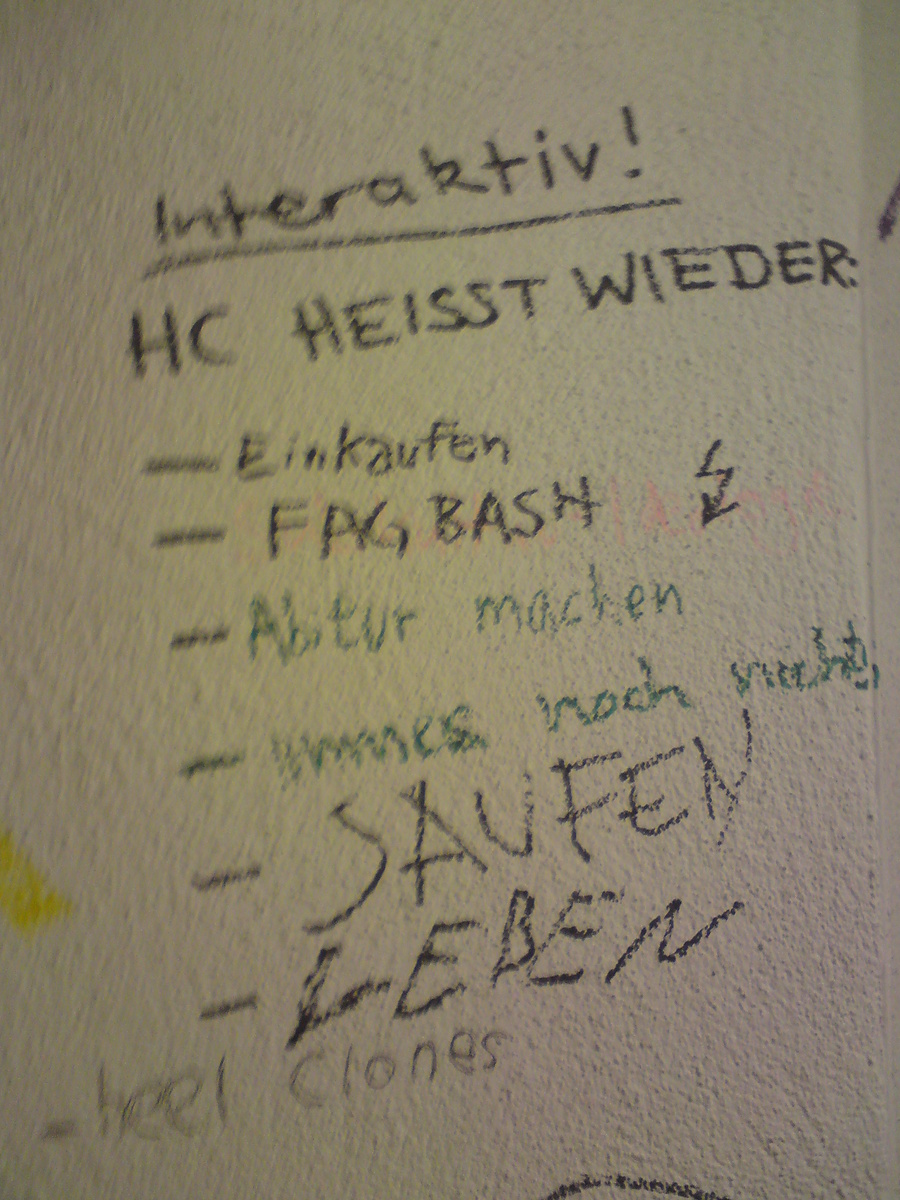 Interaktiv!
HC HEISST WIEDER:
— Einkaufen
— FAG BASH
— Abitur machen
— immer noch nicht
— SAUFEN
— LEBEN
- heel Clones